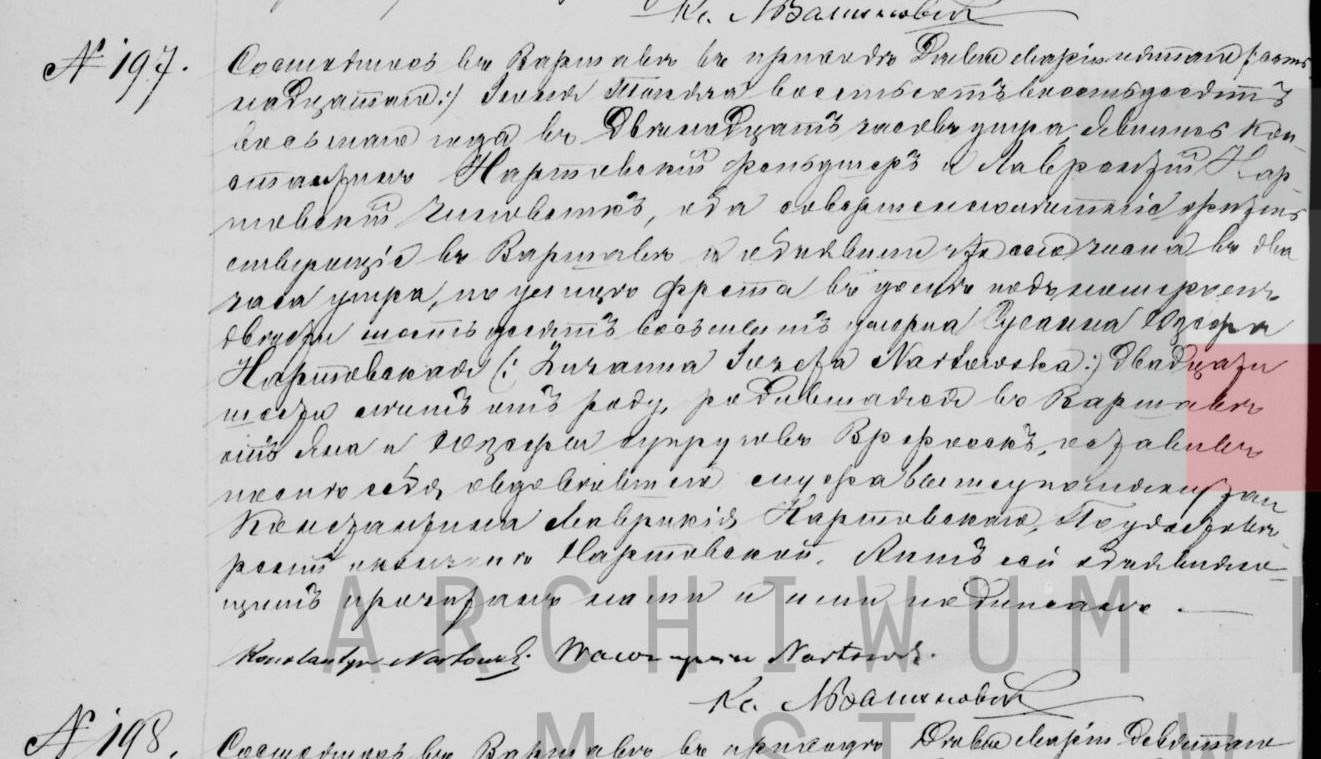 Кс. М Валиковск
№ 197.
Состоялось въ Варшавѣ въ приходѣ Дѣвы Маріи пятаго (:сем-
надцатаго:) Іюня тысяча восемьсотъ восемьдесятъ
восьмаго года въ двѣнадцать часовъ утра. Явились Кон-
стантинъ Нартовскій фельдшеръ и Лаврентій Нар-
товскій чиновникъ, оба совершеннолѣтніе жи-
въ Варшавѣ и объявили что сего числа въ два
часа утра, по улицѣ Фрета въ домѣ подъ номеромъ
двѣсти шестьдесятъ восемьмъ умерла Сусанна Юзефа
Нартовская (: Zuzanna Józefa Nartowska :) двадцати
шести лѣтъ отъ роду, родившаяся въ Варшавѣ
отъ Яна и Юзефы супруговъ оставивъ
послѣ себя овдовѣвшаго мужа
Константина Маврикія Нартовскаго. По удостовѣ-
реніи кончины Нартовской, Актъ сей объявляю-
щимъ прочитанъ нами и ими подписанъ.
Konstanty Nartowski. Wawrzyniec Nartowski.
Кс. М
№ 198.
Состоялось въ Варшавѣ въ приходѣ Дѣвы Маріи девятаго
ARCHIWUM
M ST W